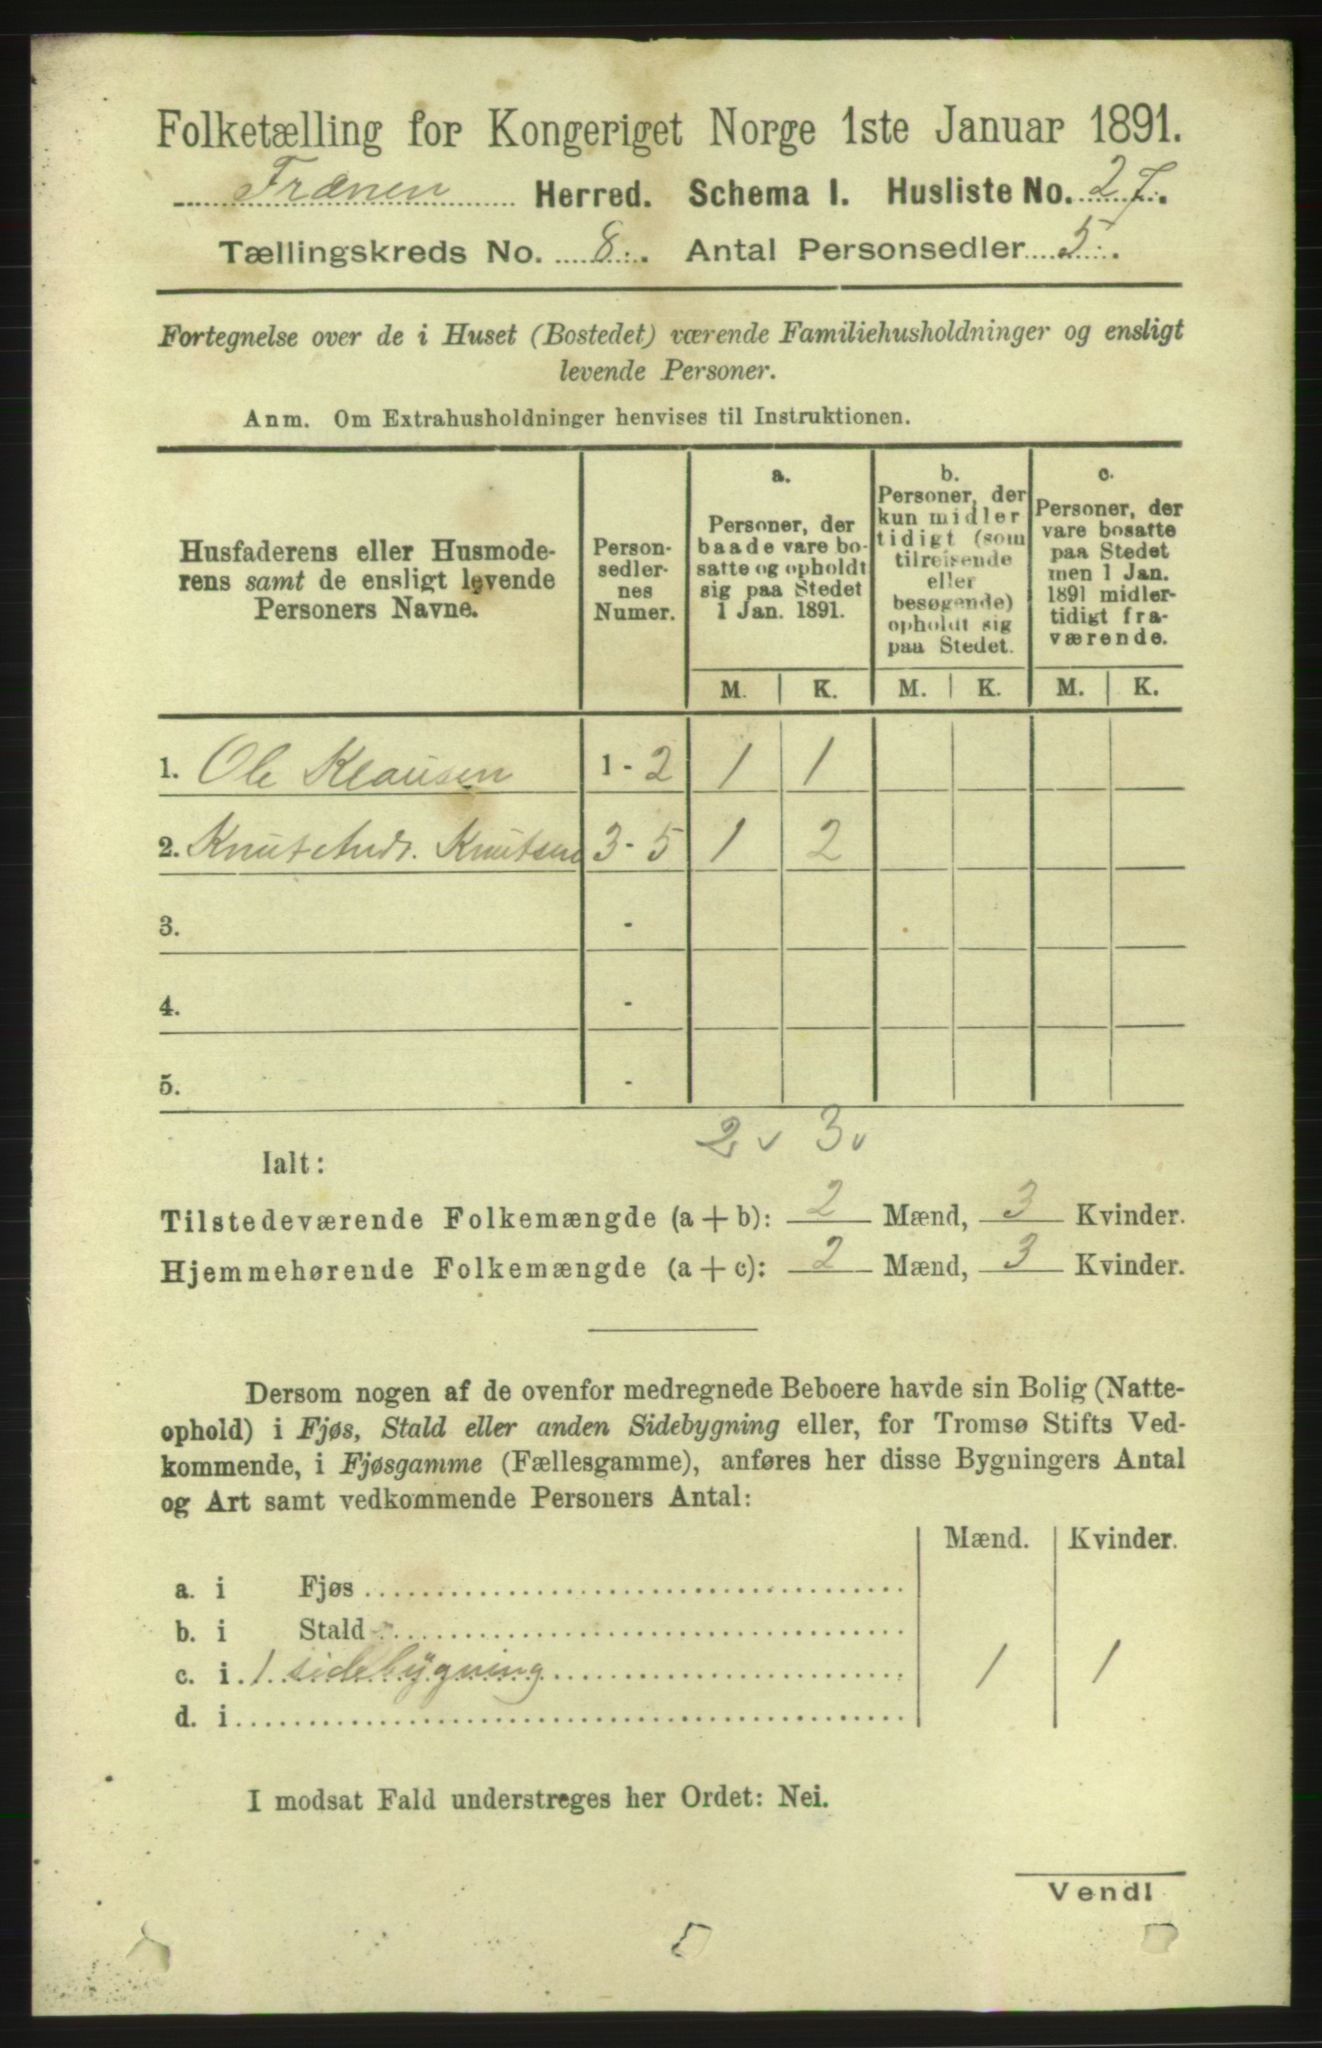 Folketælling for Kongeriget Norge 1ste Januar 1891.
Frænen Herred. Schema I. Husliste No. 27.
Tællingskreds No. 8. Antal Personsedler 5.
Fortegnelse over de i Huset (Bostedet) værende Familiehusholdninger og ensligt
levende Personer.
Anm. Om Extrahusholdninger henvises til Instruktionen.
Husfaderens eller Husmode-
rens samt de ensligt levende
Personers Navne.
Person-
sedler-
nes
Numer.
a.
Personer, der
baade vare bo-
satte og opholdt
sig paa Stedet
1 Jan. 1891.
b.
Personer, der
kun midler
tidigt (som
tilreisende
eller
besøgende)
opholdt sig
paa Stedet.
c.
Personer, der
vare bosatte
paa Stedet
men 1 Jan.
1891 midler-
tidigt fra-
værende.
M. K. M. K. M. K.
1. Ole Klausen 1 - 2 1 1
2. Knut Andr. Knutsen 3 - 5 1 2
3. -
4. -
5. -
2 v 3 v
Ialt:
Tilstedeværende Folkemængde (a + b): 2 Mænd, 3 Kvinder.
Hjemmehørende Folkemængde (a + c): 2 Mænd, 3 Kvinder.
Dersom nogen af de ovenfor medregnede Beboere havde sin Bolig (Natte-
ophold) i Fjøs, Stald eller anden Sidebygning eller, for Tromsø Stifts Ved-
kommende, i Fjøsgamme (Fællesgamme), anføres her disse Bygningers Antal
og Art samt vedkommende Personers Antal:
Mænd. Kvinder.
a. i Fjøs
b. i Stald
c. i 1 sidebygning 1 1
d. i
I modsat Fald understreges her Ordet: Nei.
Vend!